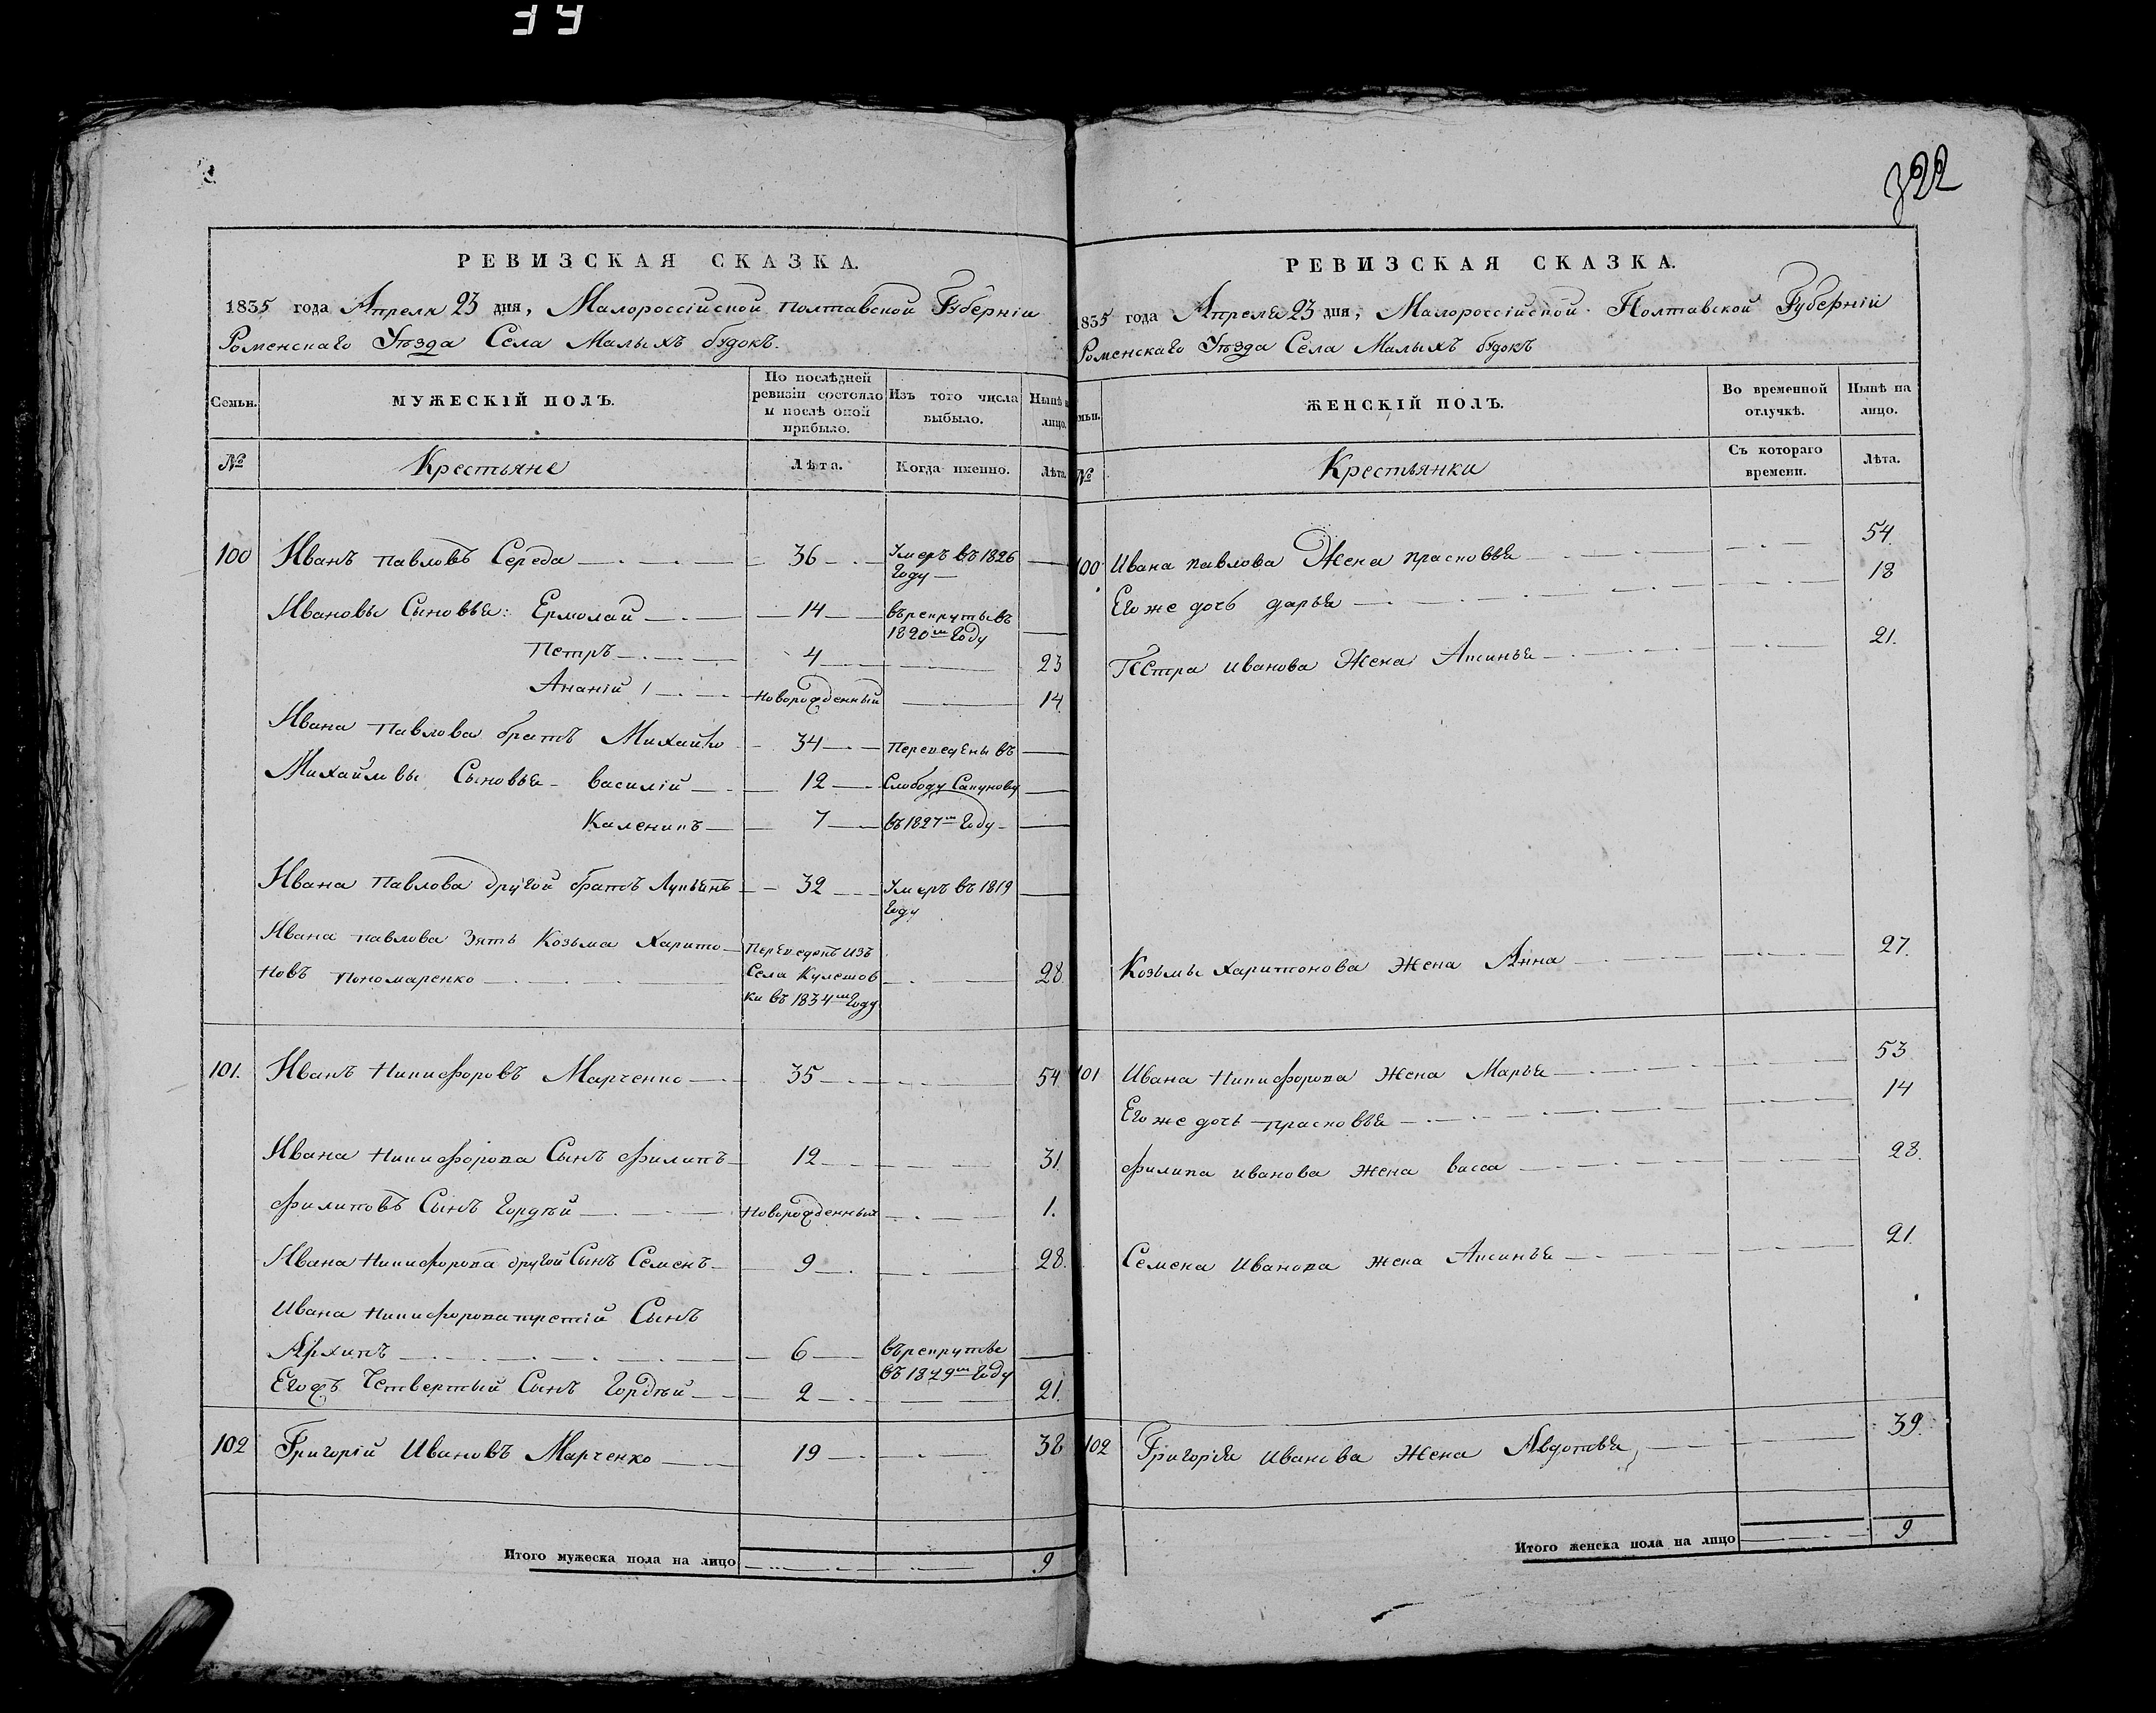 322
РЕВИЗСКАЯ СКАЗКА.
1835 года Апреля 23 дня, Малороссійской Полтавской Губерніи
Роменскаго Уѣзда Села Малыхъ будокъ.
Семьи.
МУЖЕСКІЙ ПОЛЪ.
По послѣдней ревизіи состояло и послѣ оной прибыло.
Изъ того числа выбыло.
Нынѣ на лицо.
№
Крестьяне
Лѣта.
Когда именно.
Лѣта.
100 Иванъ Павловъ Середа 36 Умеръ въ 1826 Году
Ивановы Сыновья: Ермолай 14 въ рекруты въ 1820м Году
Петръ 4 23
Ананій 1 Новорожденный 14
Ивана Павлова братъ Михайло 34 Переведены въ
Михайловы Сыновья Василій 12 Слободу Сапунову
Каленикъ 7 въ 1827м Году
Ивана Павлова другой братъ Лукьянъ 32 Умеръ въ 1819 Году
Ивана Павлова Зять Козьма Харито- Переведенъ изъ
новъ Пономаренко Села Кулешов 28
ки въ 1834м Году
101. Иванъ Никифоровъ Марченко 35 54
Ивана Никифорова Сынъ Филипъ 12 31
Филиповъ Сынъ Гордѣй Новорожденный 1.
Ивана Никифорова другой Сынъ Семенъ 9 28.
Ивана Никифорова третій Сынъ
Архипъ 6 въ рекруты въ 1829м Году
Егожъ Четвертый Сынъ Гордѣй 2 21.
102 Григорій Ивановъ Марченко 19 38
Итого мужеска пола на лицо 9
РЕВИЗСКАЯ СКАЗКА.
1835 года Апреля 23 дня, Малороссійской Полтавской Губерніи
Роменскаго Уѣзда Села Малыхъ будокъ
ЖЕНСКІЙ ПОЛЪ.
Во временной отлучкѣ.
Нынѣ на лицо.
№
Крестьянки
Съ котораго времени.
Лѣта.
100 Ивана Павлова Жена Прасковья 54
Его же дочь Дарья 18
Петра Иванова Жена Аксинья 21.
Козьмы Харитонова Жена Анна 27.
101 Ивана Никифорова Жена Марья 53
Его же дочь Прасковья 14
Филипа Иванова Жена Васса 28.
Семена Иванова Жена Аксинья 21
102 Григорія Иванова Жена Авдотья 39.
Итого женска пола на лицо 9